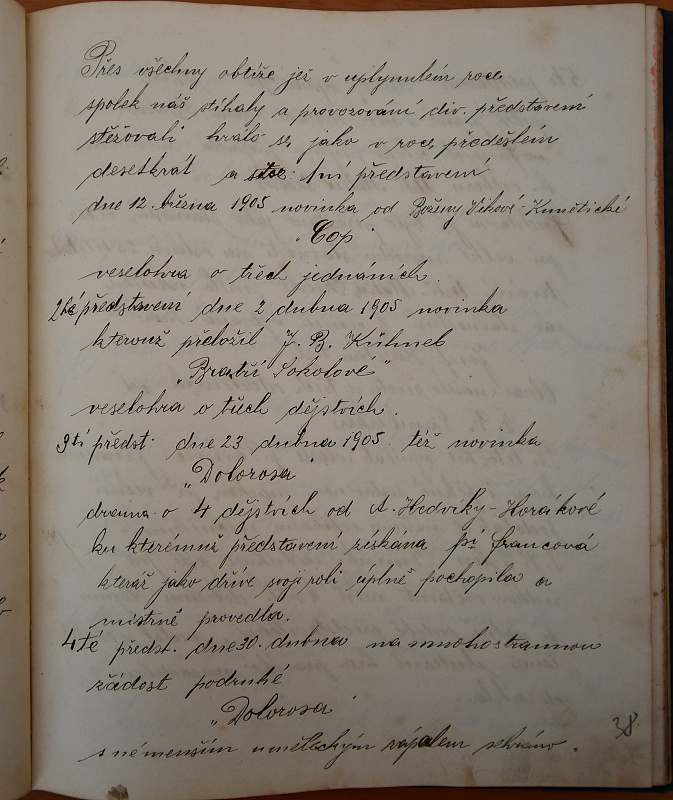 Přes všechny obtíže jež v uplynulém roce
spolek náš stíhaly a provozování div. představení
stěžovali hrálo se jako v roce předešlém
desetkrát a sice: 1ní představení
dne 12. března 1905 novinka od Boženy Vikové-Kunětické
„Cop"
veselohra o třech jednáních.
2hé představení dne 2 dubna 1905 novinka
kterouž přeložil J. B. Kühnel
„Bratří Sokolové"
veselohra o třech dějstvích.
3tí předst. dne 23 dubna 1905. též novinka
„Dolorosa"
drama o 4 dějstvích od A. Hedviky-Horákové
ku kterémuž představení získána pí Francová
kteráž jako dříve svoji roli úplně pochopila a
mistrně provedla.
4té předst. dne 30. dubna na mnohostrannou
žádost podruhé
„Dolorosa"
s neménším uměleckým zápalem sehráno.
38.